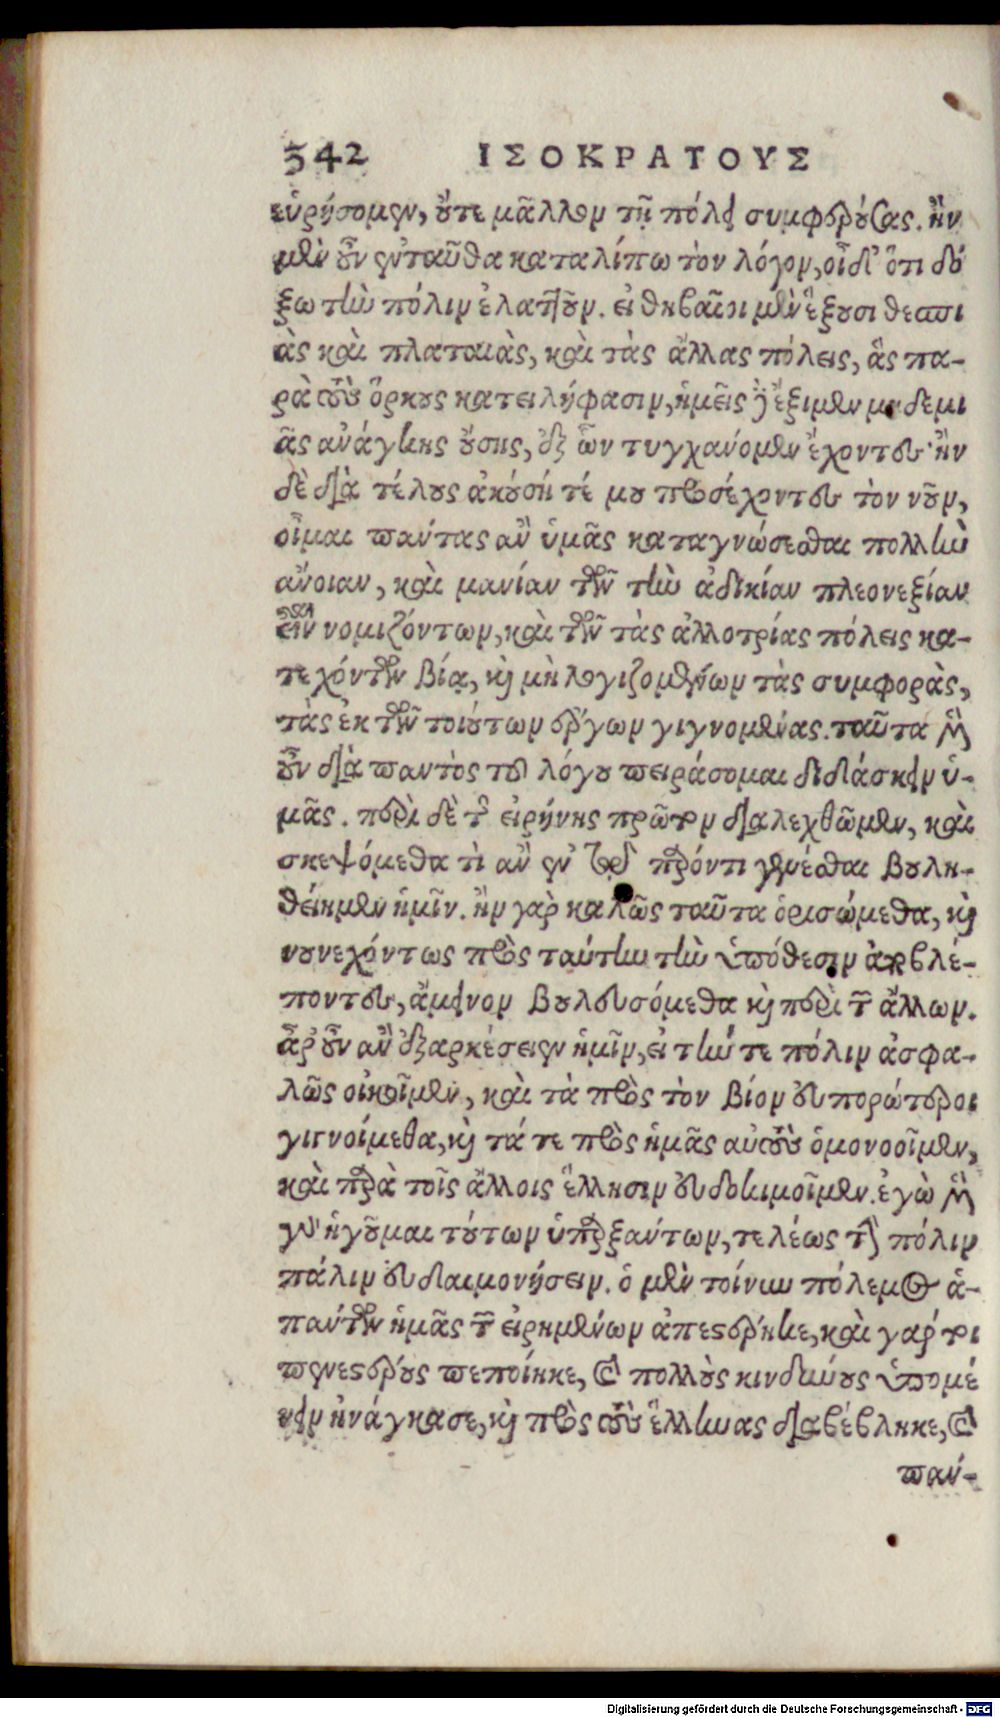 542 ΙΣΟΚΡΑΤΟΥΣ
εὑρήσομεν, οὔτε μᾶλλον τῇ πόλει συμφερούσας. ἢν
μὲν οὖν ἐνταῦθα καταλίπω τὸν λόγον, οἶδ' ὅτι δό
ξω τὴν πόλιν ἐλαττοῦν. εἰ θηβαῖοι μὲν ἕξουσι θεσπι
ὰς καὶ πλαταιὰς, καὶ τὰς ἄλλας πόλεις, ἃς πα-
ρὰ τοὺς ὅρκους κατειλήφασιν, ἡμεῖς δ' ἔξιμεν μηδεμι
ᾶς ἀνάγκης οὔσης, ἐξ ὧν τυγχάνομεν ἔχοντες· ἢν
δὲ διὰ τέλους ἀκούσητέ μου προσέχοντες τὸν νοῦν,
οἶμαι πάντας ἂν ὑμᾶς καταγνώσεσθαι πολλὴν
ἄνοιαν, καὶ μανίαν τῶν τὴν ἀδικίαν πλεονεξίαν
εἶναι νομιζόντων, καὶ τῶν τὰς ἀλλοτρίας πόλεις κα-
τεχόντων βίᾳ, καὶ μὴ λογιζομένων τὰς συμφορὰς,
τὰς ἐκ τῶν τοιούτων ἔργων γιγνομένας. ταῦτα μὲν
οὖν διὰ παντὸς τοῦ λόγου πειράσομαι διδάσκειν ὑ-
μᾶς. περὶ δὲ τῆς εἰρήνης πρῶτον διαλεχθῶμεν, καὶ
σκεψόμεθα τὶ ἂν ἐν τῷ παρόντι γενέσθαι βουλη-
θείημεν ἡμῖν. ἢν γὰρ καλῶς ταῦτα ὁρισώμεθα, καὶ
νουνεχόντως πρὸς ταύτην τὴν ὑπόθεσιν ἀποβλέ-
ποντες, ἄμεινον βουλευσόμεθα καὶ περὶ τῶν ἄλλων.
ἆρ' οὖν ἂν ἐξαρκέσειεν ἡμῖν, εἰ τήν τε πόλιν ἀσφα-
λῶς οἰκοῖμεν, καὶ τὰ πρὸς τὸν βίον εὐπορώτεροι
γιγνοίμεθα, καὶ τά τε πρὸς ἡμᾶς αὐτοὺς ὁμονοοῖμεν,
καὶ παρὰ τοῖς ἄλλοις ἕλλησιν εὐδοκιμοῖμεν. ἐγὼ μὲν
γὰρ ἡγοῦμαι τούτων ὑπαρξάντων, τελέως τὴν πόλιν
πάλιν εὐδαιμονήσειν. ὁ μὲν τοίνυν πόλεμος ἁ-
πάντων ἡμᾶς τῶν εἰρημένων ἀπεστέρηκε, καὶ γάρ τοι
πενεστέρους πεποίηκε, καὶ πολλοὺς κινδύνους ὑπομέ
νειν ἠνάγκασε, καὶ πρὸς τοὺς ἕλληνας διαβέβληκε, καὶ
παν-
Digitalisierung gefördert durch die Deutsche Forschungsgemeinschaft - DFG